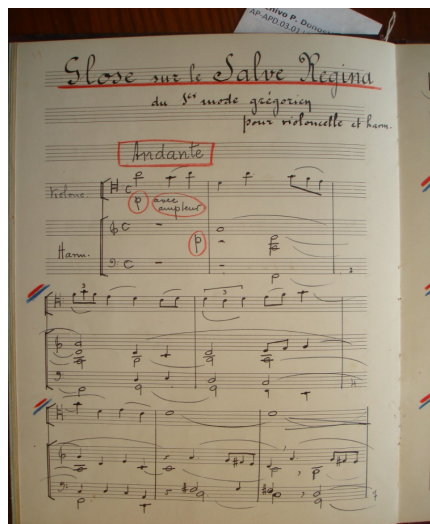 chivo P. Dono
AP-APD.03.01
Glose sur le Salve Regina
du 1er mode grégorien
pour violoncelle et harm.
Andante
Violonc.
p avec ampleur
Harm.
p
3
3